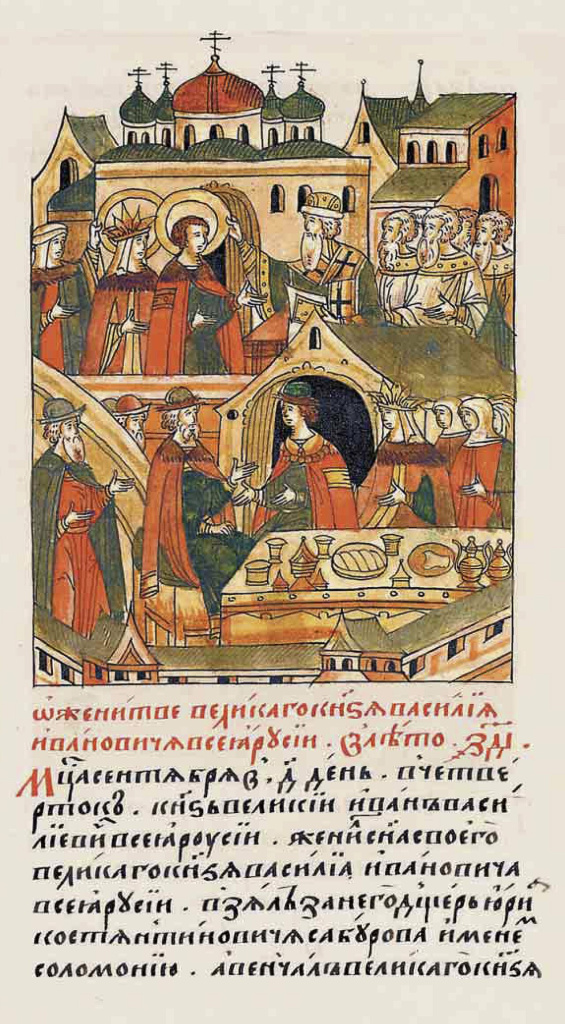 ѡженитве великагокнѕѧвасилїѧ
ивановичѧвсеꙗрусїи . Вълѣто . ҂зд҃і .
Мц҃асентѧбрѧв . д҃ день . вчетве
ртокъ . кнѕьвеликїи иванъваси
лїеви҆чвсеꙗроусїи . женилсн҃асвоего
великагокнѕѧвасилїа ивановича
всеꙗрусїи . взѧлъзанегодщерьюрїꙗ
костѧнтиновичѧсабурова именем
соломонїю . авенчалъвеликагокнѕѧ